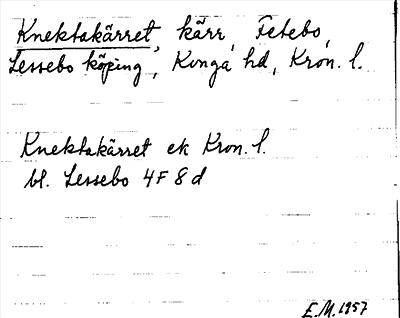 Knektakärret, kärr, Fetebo,
Lessebo köping, Konga hd, Kron. l.
Knektakärret ek Kron. l.
bl. Lessebo 4F 8d
E.M. 1957